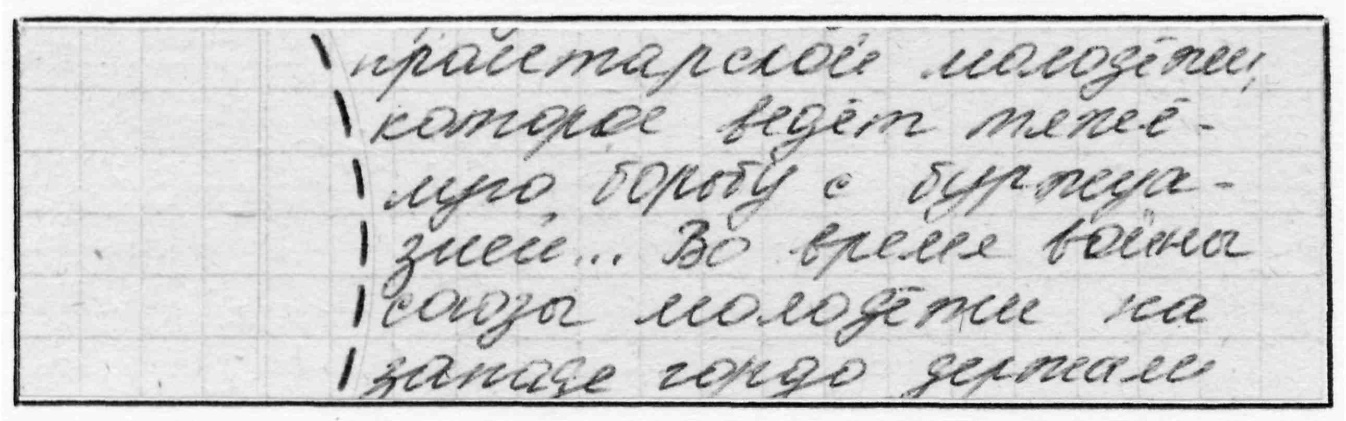 пролетарской молодёжи,
которое ведёт тяжё-
лую борьбу с буржуа-
зией... Во время войны
союзы молодёжи на
западе гордо держали